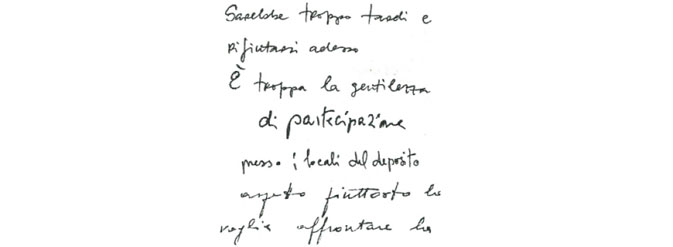 Sarebbe troppo tardi e
rifiutarsi adesso
È troppa la gentilezza
di partecipazione
presso i locali del deposito
aspetto piuttosto la
voglia affrontare la